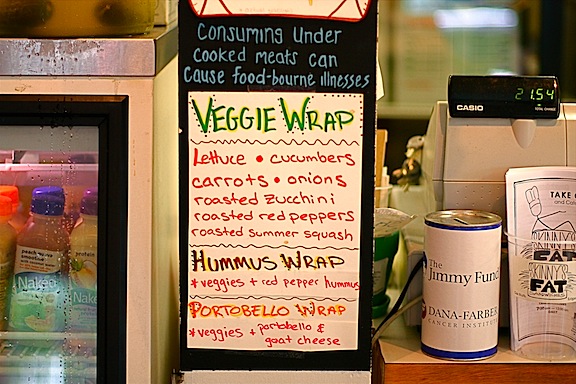 Consuming Under
cooked meats can
Cause food-bourne illnesses
VEGGIE WRAP
Lettuce • cucumbers
carrots • onions
roasted zucchini
roasted red peppers
roasted summer squash
HUMMUS WRAP
* veggies + red pepper hummus
PORTOBELLO WRAP
* veggies + portobello &
goat cheese
CASIO
21.54
TOTAL CHANGE
The
Jimmy Fund
DANA-FARBER
CANCER INSTITUTE
TAKE
SKINNY'S
FAT
peach
smoothie
Naked
protein
Naked